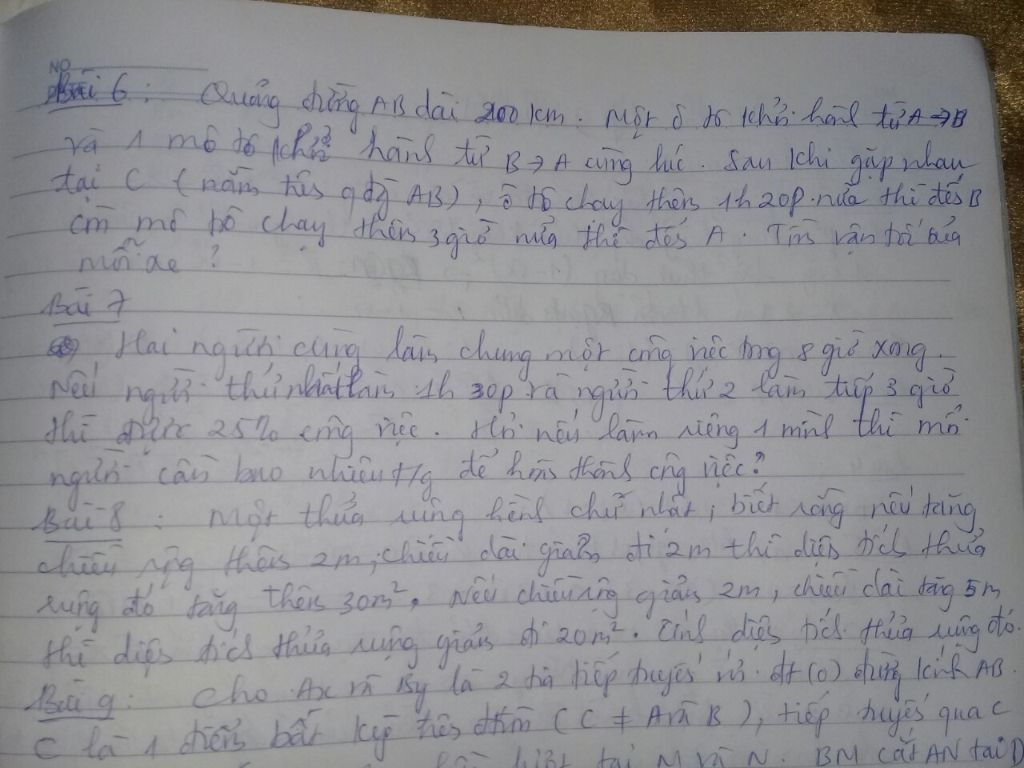 NO
Bài 6 : Quảng đường AB dài 200 km. Một ô tô khởi hành từ A → B
và 1 mô tô khởi hành từ B → A cùng lúc. Sau khi gặp nhau
tại C (nằm trên qđg AB), ô tô chạy thêm 1h20p nữa thì đến B
còn mô tô chạy thêm 3 giờ nữa thì đến A. Tính vận tốc của
mỗi xe ?
Bài 7
Hai người cùng làm chung một công việc trong 8 giờ xong.
Nếu người thứ nhất làm 1h 30p và người thứ 2 làm tiếp 3 giờ
thì được 25% công việc. Hỏi nếu làm riêng 1 mình thì mỗi
người cần bao nhiêu t/g để hoàn thành công việc?
Bài 8 : Một thửa ruộng hình chữ nhật, biết rằng nếu tăng
chiều rộng thêm 2m, chiều dài giảm đi 2m thì diện tích thửa
ruộng đó tăng thêm 30m². Nếu chiều rộng giảm 2m, chiều dài tăng 5m
thì diện tích thửa ruộng giảm đi 20m². Tính diện tích thửa ruộng đó.
Bài 9 : Cho Ax và By là 2 tia tiếp tuyến với đt (O) đường kính AB.
C là 1 điểm bất kỳ trên đtròn (C ≠ A và B), tiếp tuyến qua C
lần lượt tại M và N. BM cắt AN tại D